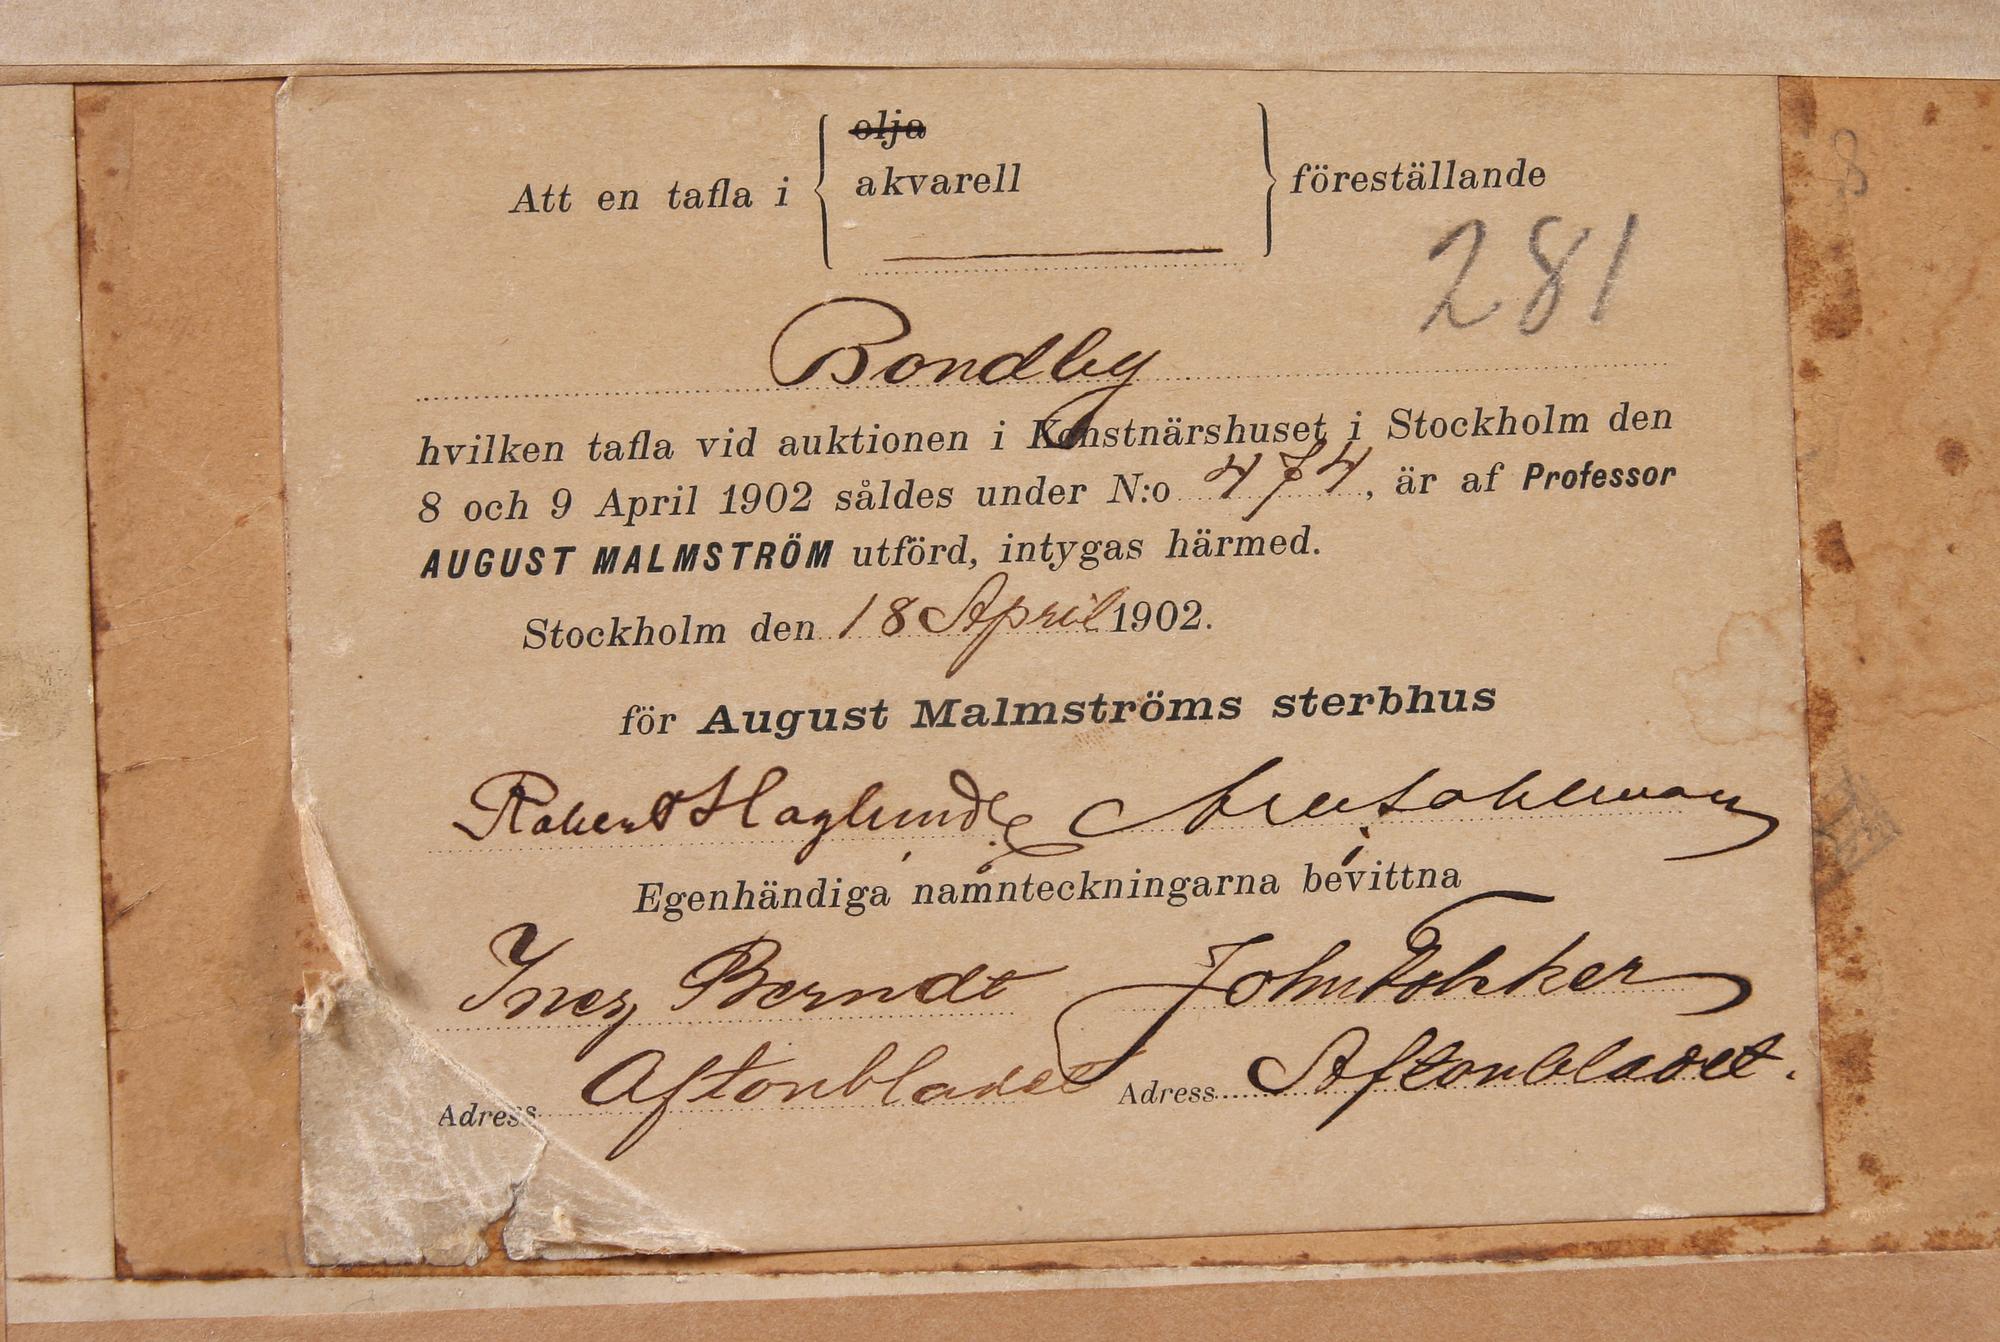 olja
Att en tafla i akvarell föreställande
281
Bondby
hvilken tafla vid auktionen i Konstnärshuset i Stockholm den
8 och 9 April 1902 såldes under N:o 474, är af Professor
AUGUST MALMSTRÖM utförd, intygas härmed.
Stockholm den 18 April 1902.
för August Malmströms sterbhus
Robert Haglund
Egenhändiga namnteckningarna bevittna
Inez Berndt John
Adress Aftonbladet Adress Aftonbladet.
8